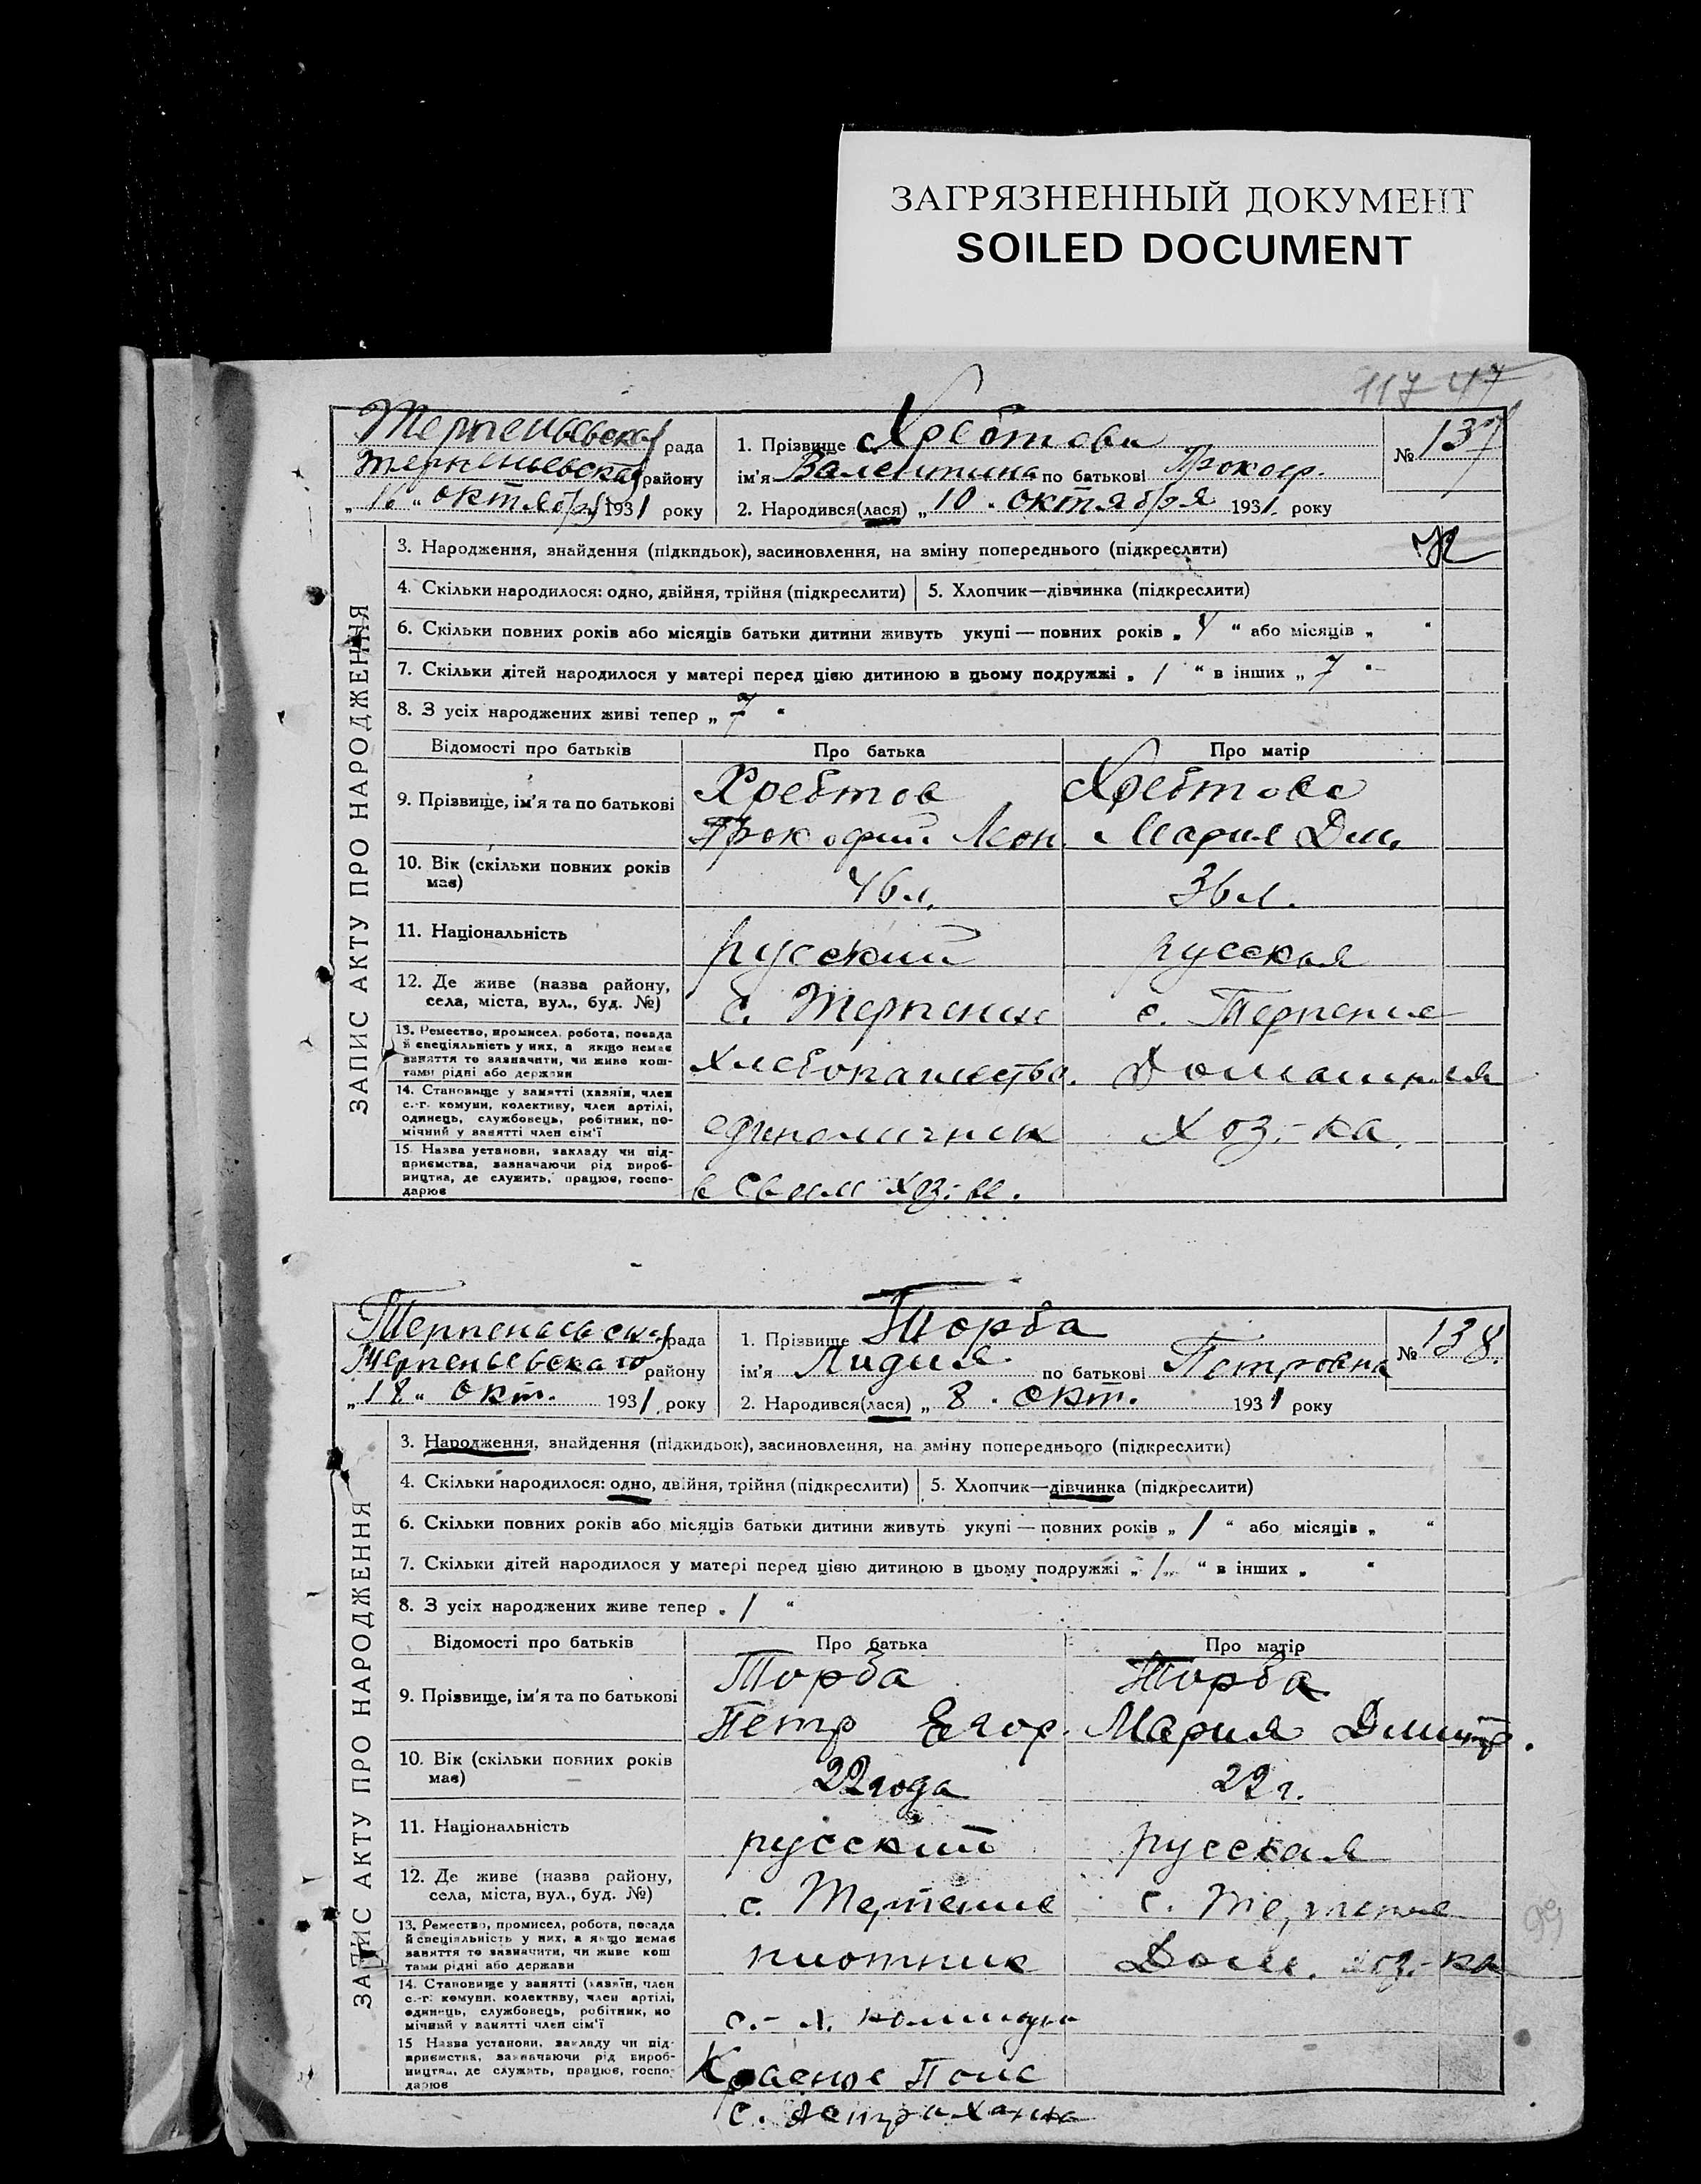 ЗАГРЯЗНЕННЫЙ ДОКУМЕНТ
SOILED DOCUMENT
117 47
Терпеньевская рада
Терпеньевская району
„16“ октября 1931 року
1. Прізвище Хребтова
ім'я Валентина по батькові Прокоф.
2. Народився(лася) „10“ октября 1931 року
№ 137
ЗАПИС АКТУ ПРО НАРОДЖЕННЯ
3. Народження, знайдення (підкидьок), засиновлення, на зміну попереднього (підкреслити)
4. Скільки народилося: одно, двійня, трійня (підкреслити) 5. Хлопчик—дівчинка (підкреслити)
6. Скільки повних років або місяців батьки дитини живуть укупі — повних років „ “ або місяців „ “
7. Скільки дітей народилося у матері перед цією дитиною в цьому подружжі „ 1 “ в інших „ 7 “
8. З усіх народжених живі тепер „ 7 “
Відомості про батьків Про батька Про матір
9. Прізвище, ім'я та по батькові
Хребтов Хребтова
Прокофий Леон. Мария Дм.
10. Вік (скільки повних років має)
46 л. 36 л.
11. Національність
русский русская
12. Де живе (назва району,
села, міста, вул., буд. №)
с. Терпение с. Терпение
13. Ремество, промисел, робота, посада
й спеціяльність у них, а якщо немає
заняття то зазначити, чи живе кош-
тами рідні або держави
хлебопашество. Домашняя
14. Становище у занятті (хазяїн, член
с.-г. комуни, колективу, член артілі,
одинець, службовець, робітник, по-
мічний у занятті член сім'ї
единоличник хоз.-ка.
15. Назва установи, закладу чи під-
приємства, зазначаючи рід вироб-
ництва, де служить, працює, госпо-
дарює
в своем хоз.-ве.
Терпеньевская рада
Терпеньевскаго району
„18“ окт. 1931 року
1. Прізвище Торба
ім'я Лидия по батькові Петровна
2. Народився(лася) „8“ окт. 1931 року
№ 138.
ЗАПИС АКТУ ПРО НАРОДЖЕННЯ
3. Народження, знайдення (підкидьок), засиновлення, на зміну попереднього (підкреслити)
4. Скільки народилося: одно, двійня, трійня (підкреслити) 5. Хлопчик—дівчинка (підкреслити)
6. Скільки повних років або місяців батьки дитини живуть укупі — повних років „ 1 “ або місяців „ “
7. Скільки дітей народилося у матері перед цією дитиною в цьому подружжі „ 1 “ в інших „ “
8. З усіх народжених живе тепер „ 1 “
Відомості про батьків Про батька Про матір
9. Прізвище, ім'я та по батькові
Торба Торба
Петр Егор. Мария Дмитр.
10. Вік (скільки повних років має)
22 года 22 г.
11. Національність
русский русская
12. Де живе (назва району,
села, міста, вул., буд. №)
с. Терпение с. Терпение
13. Ремество, промисел, робота, посада
й спеціяльність у них, а якщо немає
заняття то зазначити, чи живе кош
тами рідні або держави
плотник Дом. хоз.-ка
14. Становище у занятті (хазяїн, член
с.-г. комуни, колективу, член артілі,
одинець, службовець, робітник, по
мічний у занятті член сім'ї
с.-х. коммуны
15 Назва установи, закладу чи під-
приємства, зазначаючи рід вироб-
ництва, де служить, працює, госпо-
дарює
Красное Поле
с. Астраханка
99